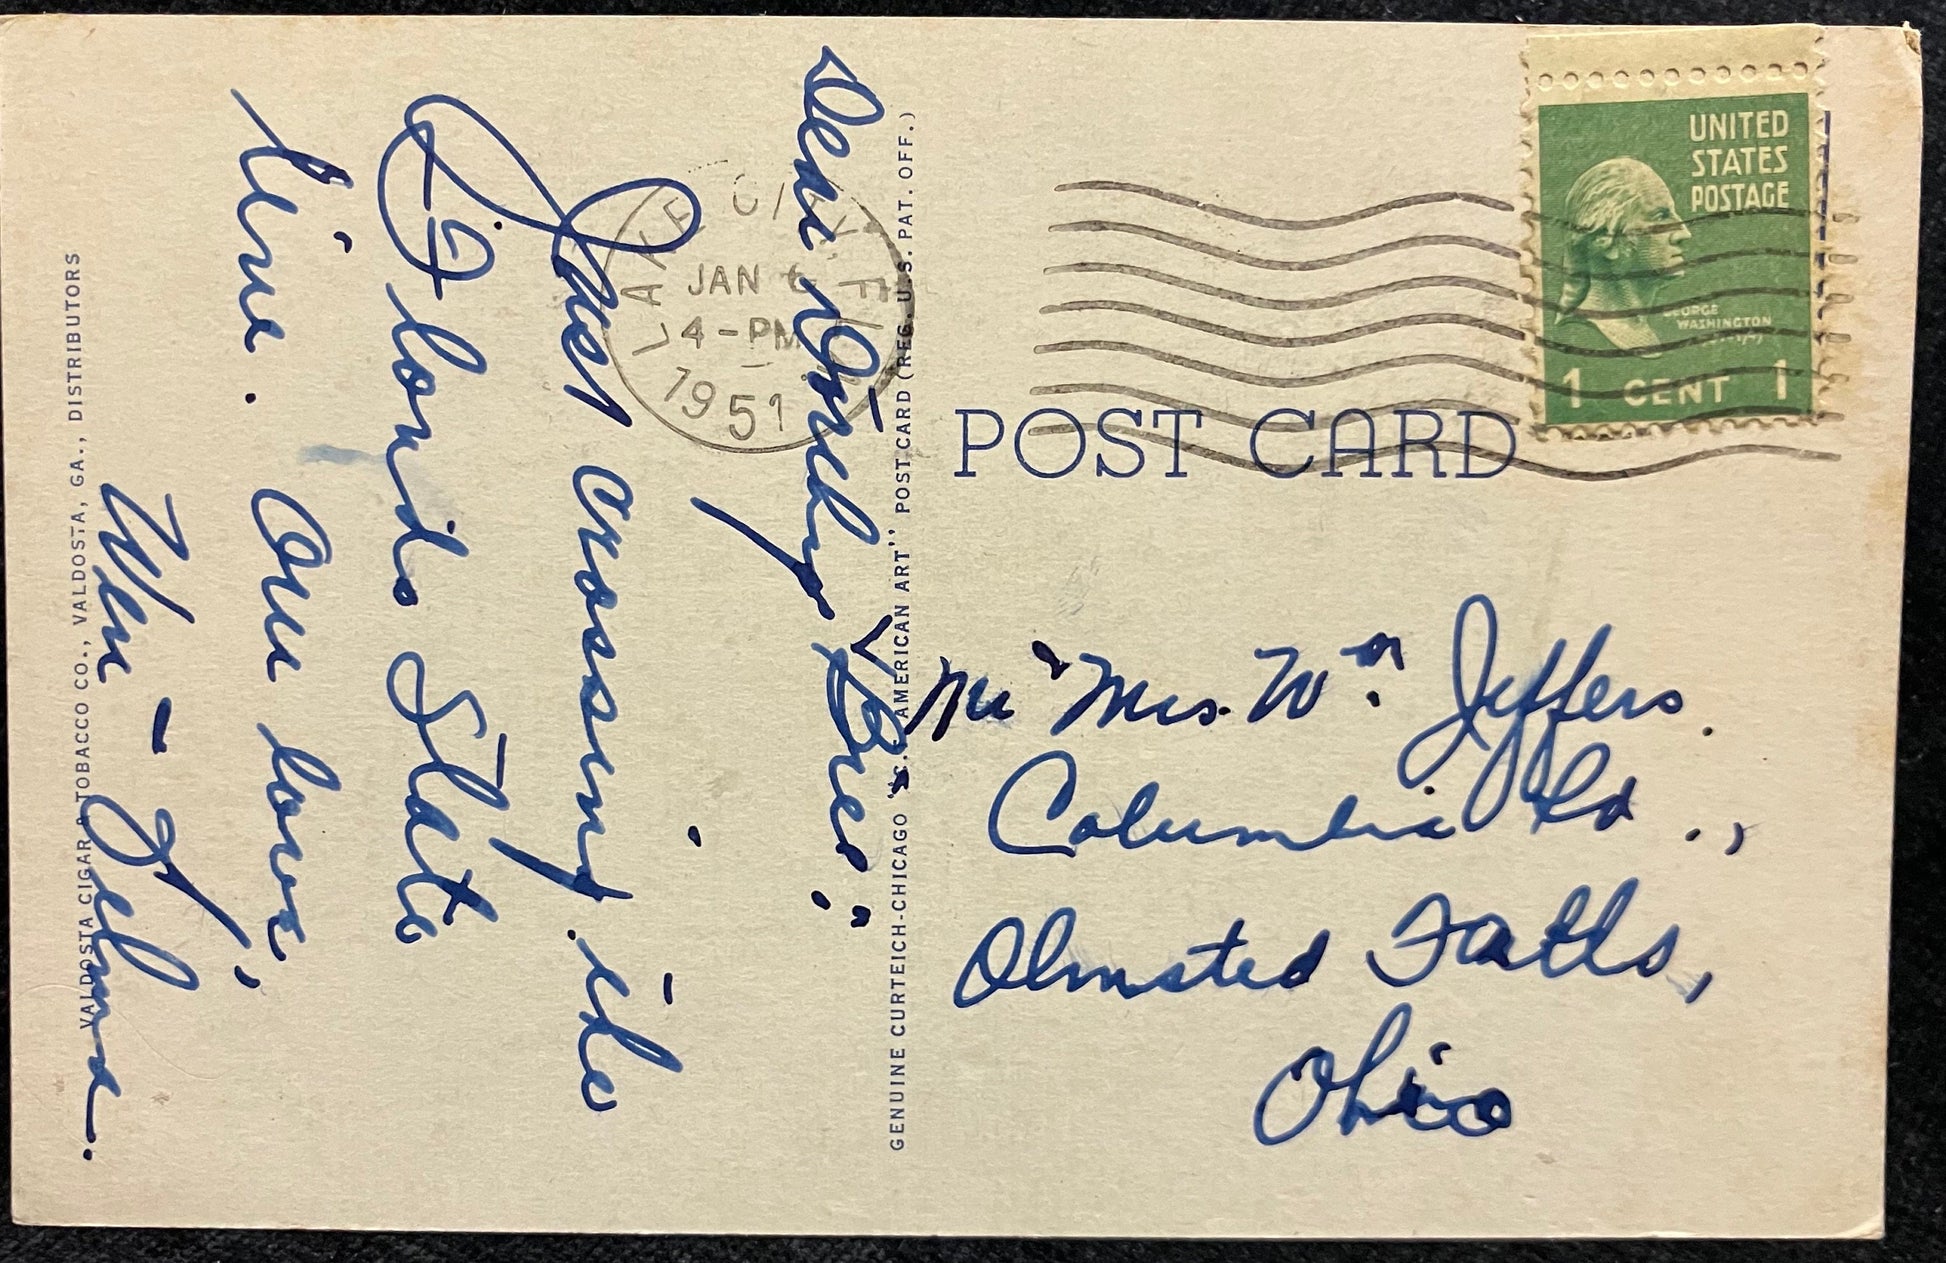 Dear Dorothy & Bree:
Just crossing the
Florida State
line. Our love,
Wm - & Selma.
VALDOSTA CIGAR & TOBACCO CO., VALDOSTA, GA., DISTRIBUTORS
GENUINE CURTEICH-CHICAGO "C.T. AMERICAN ART" POST CARD (REG. U.S. PAT. OFF.)
LAKE CITY
JAN 6
4-PM
1951
UNITED
STATES
POSTAGE
GEORGE
WASHINGTON
1 CENT 1
POST CARD
Mr Mrs. Wm. Jeffers.
Columbia Rd.,
Olmsted Falls,
Ohio